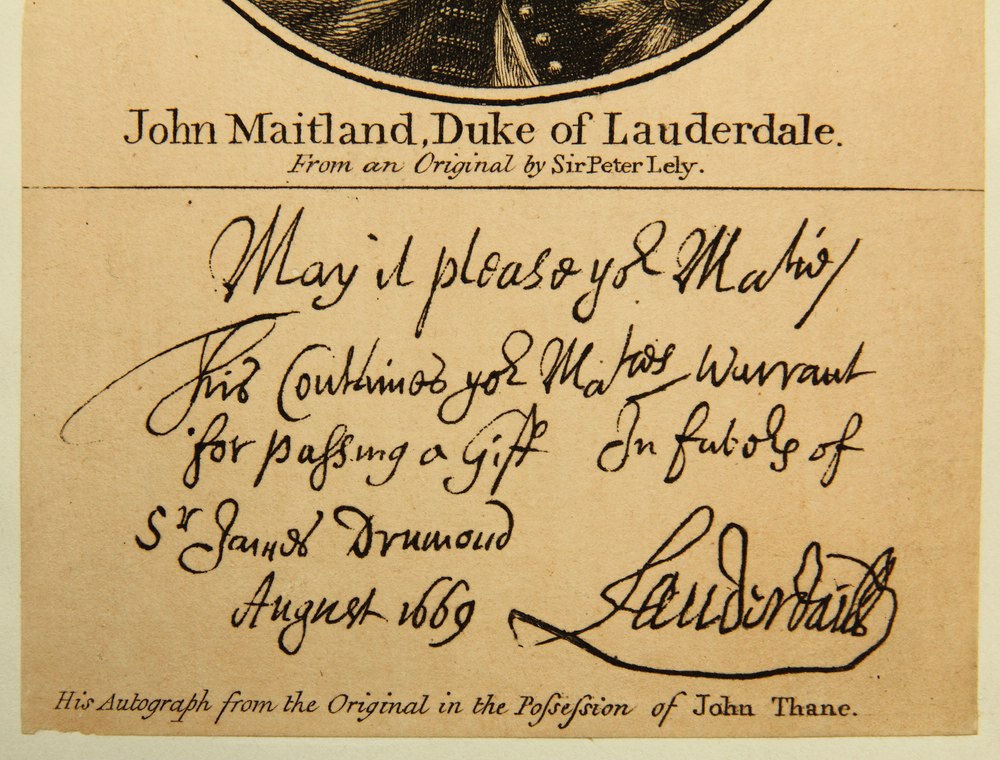 John Maitland, Duke of Lauderdale.
From an Original by Sir Peter Lely.
May it please yor Maties
This Conteines yor Maties Warrant
for paſsing a Gift In favors of
Sr James Drumond
August 1669
Lauderdaill
His Autograph from the Original in the Poſseſsion of John Thane.